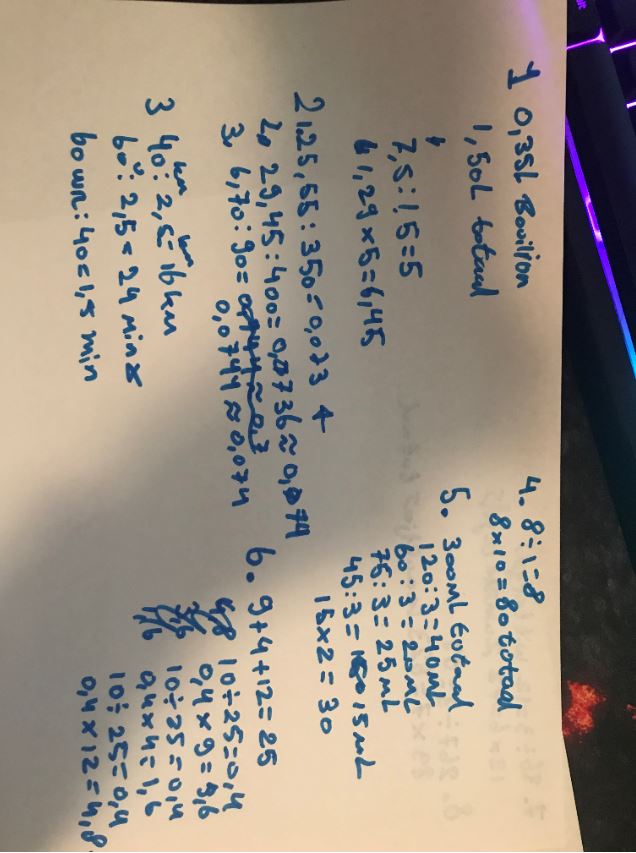 1 0,35L Bouillon
1,50L totaal
7,5:1,5=5
1,29x5=6,45
2 1.25,55:350=0,073 ←
2. 29,45:400=0,0736≈0,074
3. 6,70:90=
0,0744≈0,074
3 40km:2,5=16km
60:2,5=24 min
60 min:40=1,5 min
4. 8÷1=8
8x10=80 totaal
5. 300mL totaal
120:3=40mL
60:3=20mL
75:3=25mL
45:3=15mL
15x2=30
6. 9+4+12=25
10÷25=0,4
0,4x9=3,6
10÷25=0,4
0,4x4=1,6
10÷25=0,4
0,4x12=4,8